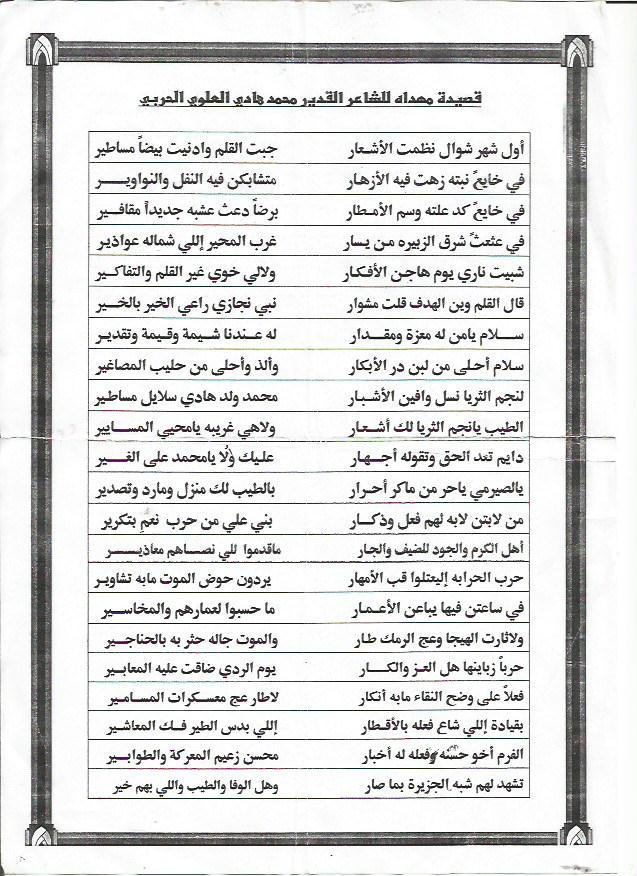 قصيدة مهداه للشاعر القدير محمد هادي العلوي الحربي
أول شهر شوال نظمت الأشعار جبت القلم وادنيت بيضاً مساطير
في خايعً نبته زهت فيه الأزهار متشابكن فيه النفل والنواوير
في خايعً كد علته وسم الأمطار برضاً دعث عشبه جديداً مقافير
في عثعثً شرق الزبيره من يسار غرب المحير إللي شماله عواذير
شبيت ناري يوم هاجن الأفكار ولالي خوي غير القلم والتفاكير
قال القلم وين الهدف قلت مشوار نبي نجازي راعي الخير بالخير
سلام يامن له معزة ومقدار له عندنا شيمة وقيمة وتقدير
سلام أحلى من لبن در الأبكار وألذ وأحلى من حليب المصاغير
لنجم الثريا نسل وافين الأشبار محمد ولد هادي سلايل مساطير
الطيب يانجم الثريا لك أشعار ولاهي غريبه يامحيي المسايير
دايم تعد الحق وتقوله أجهار عليك ولا يامحمد على الغير
يالصيرمي ياحر من ماكر أحرار بالطيب لك منزل ومارد وتصدير
من لابتن لابه لهم فعل وذكار بني علي من حرب نعم بتكرير
أهل الكرم والجود للضيف والجار ماقدموا للي نصاهم معاذير
حرب الحرابه إليعتلوا قب الأمهار يردون حوض الموت مابه تشاوير
في ساعتن فيها يباعن الأعمار ما حسبوا لعمارهم والمخاسير
ولاثارت الهيجا وعج الرمك طار والموت جاله حثر به بالحناجير
حرباً زباينها هل العز والكار يوم الردي ضاقت عليه المعابير
فعلاً على وضح النقاء مابه أنكار لاطار عج معسكرات المسامير
بقيادة إللي شاع فعله بالأقطار إللي بدس الطير فك المعاشير
الفرم أخو حسنه وفعله له أخبار محسن زعيم المعركة والطوابير
تشهد لهم شبه الجزيرة بما صار وهل الوفا والطيب واللي بهم خير